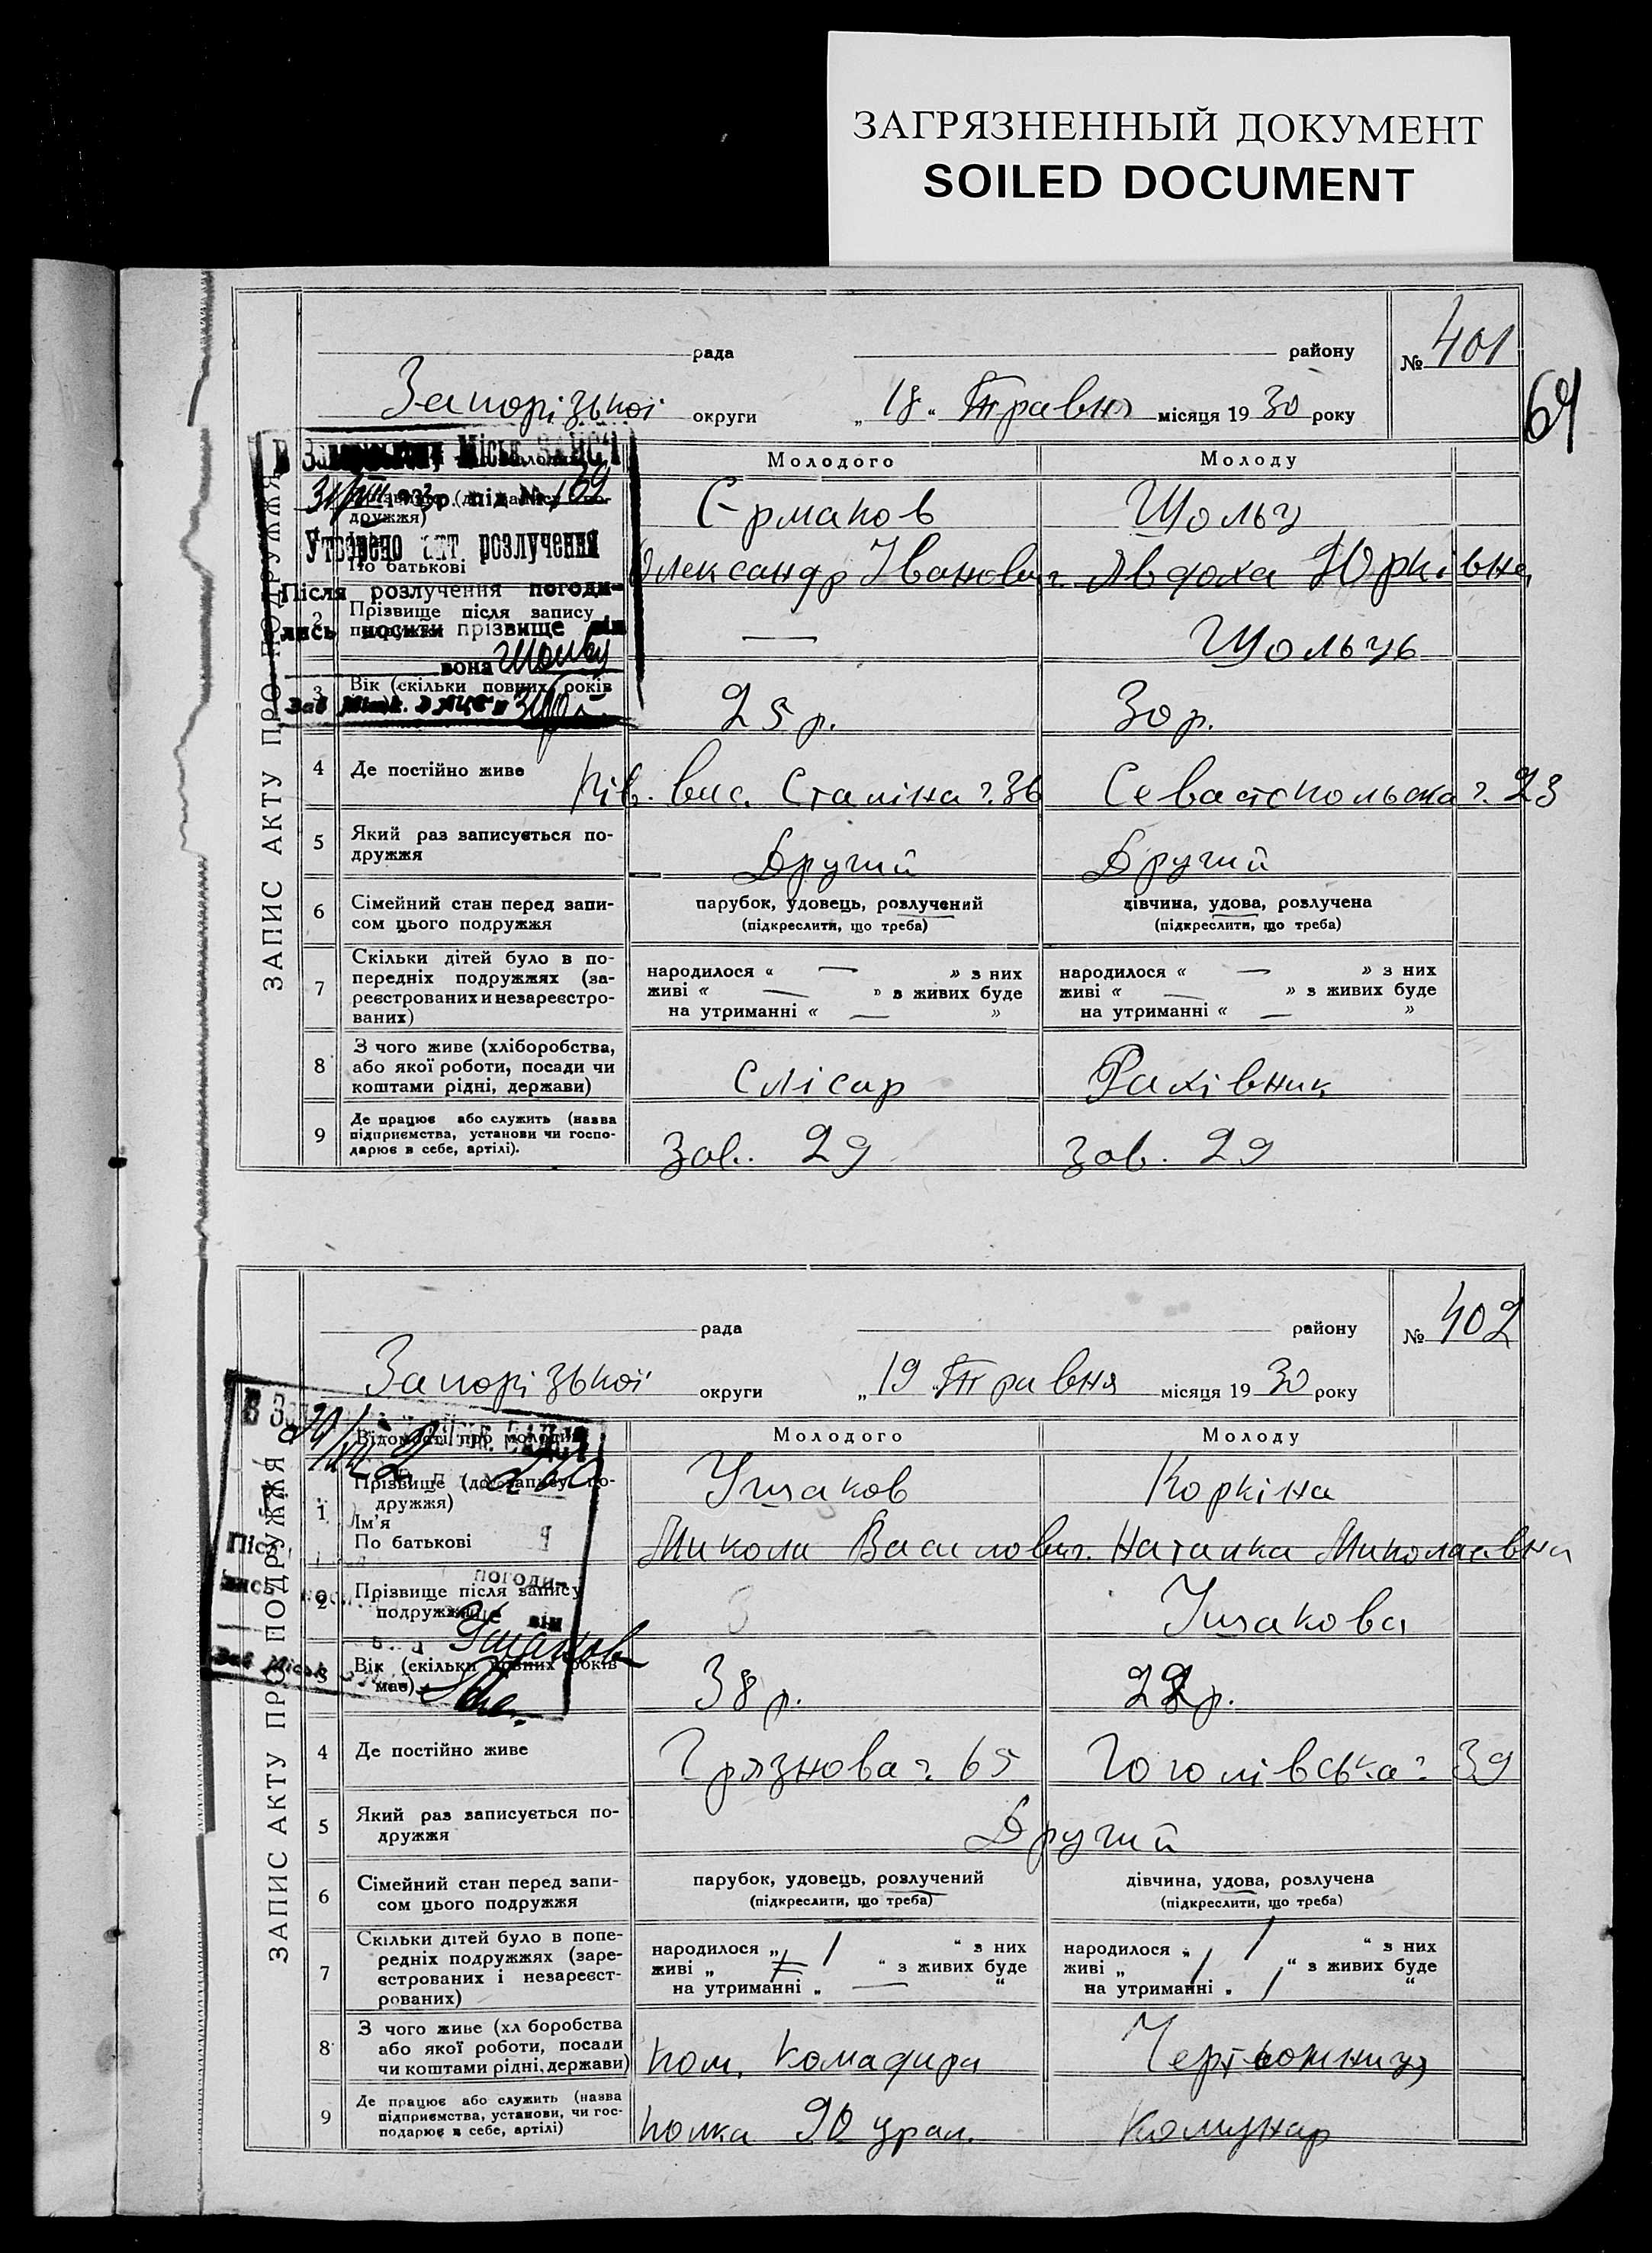 ЗАГРЯЗНЕННЫЙ ДОКУМЕНТ
SOILED DOCUMENT
рада району № 401
Запорізької округи „18“ Травня місяця 1930 року
64
ЗАПИС АКТУ ПРО ПОДРУЖЖЯ
Молодого Молоду
дружжя)
По батькові
Утворено акт розлучення
Після розлучення погоди-
лись носити прізвище він
вона Шольц
Єрмаков Шольц
Олександр Іванович Явдоха Юрківна
2 Прізвище після запису
— Шольць
3 Вік (скільки повних років
25 р. 30 р.
4 Де постійно живе вис. Сталіна ч. 36 Севастопольска ч. 23
5 Який раз записується по-
дружжя
Другий Другий
6 Сімейний стан перед запи-
сом цього подружжя
парубок, удовець, розлучений
(підкреслити, що треба)
дівчина, удова, розлучена
(підкреслити, що треба)
7 Скільки дітей було в по-
передніх подружжях (за-
реєстрованих и незареєстро-
ваних)
народилося « — » з них
живі « — » в живих буде
на утриманні « — »
народилося « — » з них
живі « — » в живих буде
на утриманні « — »
8 З чого живе (хліборобства,
або якої роботи, посади чи
коштами рідні, держави)
Слісар Рахівник
9 Де працює або служить (назва
підприємства, установи чи госпо-
дарює в себе, артілі).
Зав. 29 Зав. 29
рада району № 402
Запорізької округи „19“ Травня місяця 1930 року
ЗАПИС АКТУ ПРО ПОДРУЖЖЯ
Відомості про молодих Молодого Молоду
1 Прізвище (до запису по-
дружжя)
Ім’я
По батькові
Ушаков Коркіна
Микола Василович Наталка Миколаєвна
2 Прізвище після запису
подружжя
погоди-
він
Ушакова
Ушакова
Вік (скільки повних років
має)
38 р. 22 р.
4 Де постійно живе Грязнова ч. 65 Гоголівська ч. 39
5 Який раз записується по-
дружжя
Другий
6 Сімейний стан перед запи-
сом цього подружжя
парубок, удовець, розлучений
(підкреслити, що треба)
дівчина, удова, розлучена
(підкреслити, що треба)
7 Скільки дітей було в попе-
редніх подружжях (заре-
єстрованих і незареєст-
рованих)
народилося „ 1 “ з них
живі „ “ з живих буде
на утриманні „ — “
народилося „ 1 “ з них
живі „ 1 “ з живих буде
на утриманні „ 1 “
8 З чого живе (хл боробства
або якої роботи, посади
чи коштами рідні, держави)
пом. комадира Чертьожниця
9 Де працює або служить (назва
підприємства, установи, чи гос-
подарює в себе, артілі)
полка 90 урал. Комунар